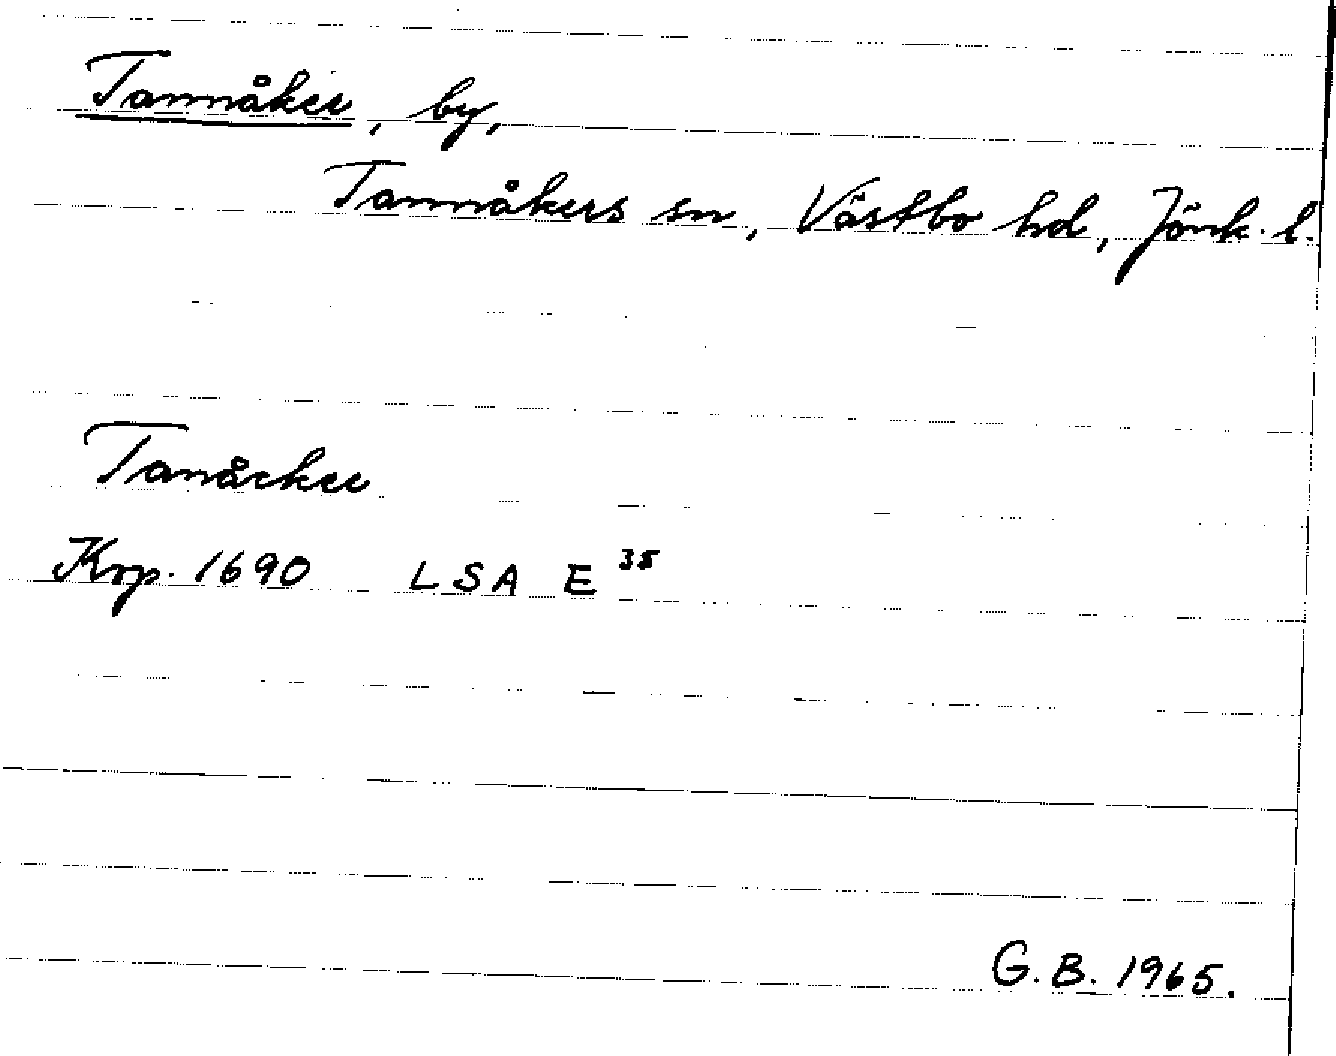 Tannåker, by,
Tannåkers sn, Västbo hd, Jönk. l.
Tanåcker
Krp. 1690 LSA E 35
G. B. 1965.